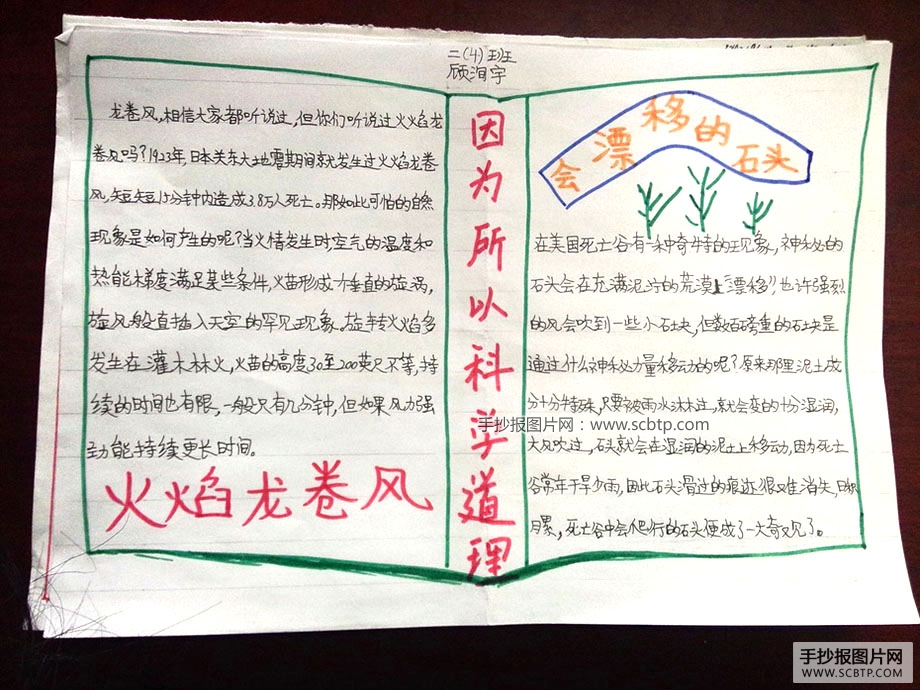 二(4)班
顾洵宇
龙卷风,相信大家都听说过,但你们听说过火焰龙
卷风吗?1923年,日本关东大地震期间就发生过火焰龙卷
风,短短15分钟内造成3.8万人死亡。那如此可怕的自然
现象是如何产生的呢?当火情发生时,空气的温度和
热能梯度满足某些条件,火苗形成一个垂直的旋涡,
旋风般直插入天空的罕见现象。旋转火焰多
发生在灌木林火,火苗的高度30至200英尺不等,持
续的时间也有限,一般只有几分钟,但如果风力强
劲能持续更长时间。
火焰龙卷风
因为所以科学道理
会漂移的石头
在美国死亡谷有一种奇特的现象,神秘的
石头会在充满泥泞的荒漠上“漂移”,也许强烈
的风会吹到一些小石块,但数百磅重的石块是
通过什么神秘力量移动的呢?原来那里泥土成
分十分特殊,只要被雨水淋过,就会变的十分湿润,
大风吹过,石头就会在湿润的泥土上移动,因为死亡
谷常年干旱少雨,因此石头滑过的痕迹很难消失,日积
月累,死亡谷中会爬行的石头便成了一大奇观了。
手抄报图片网:www.scbtp.com
手抄报图片网
WWW.SCBTP.COM